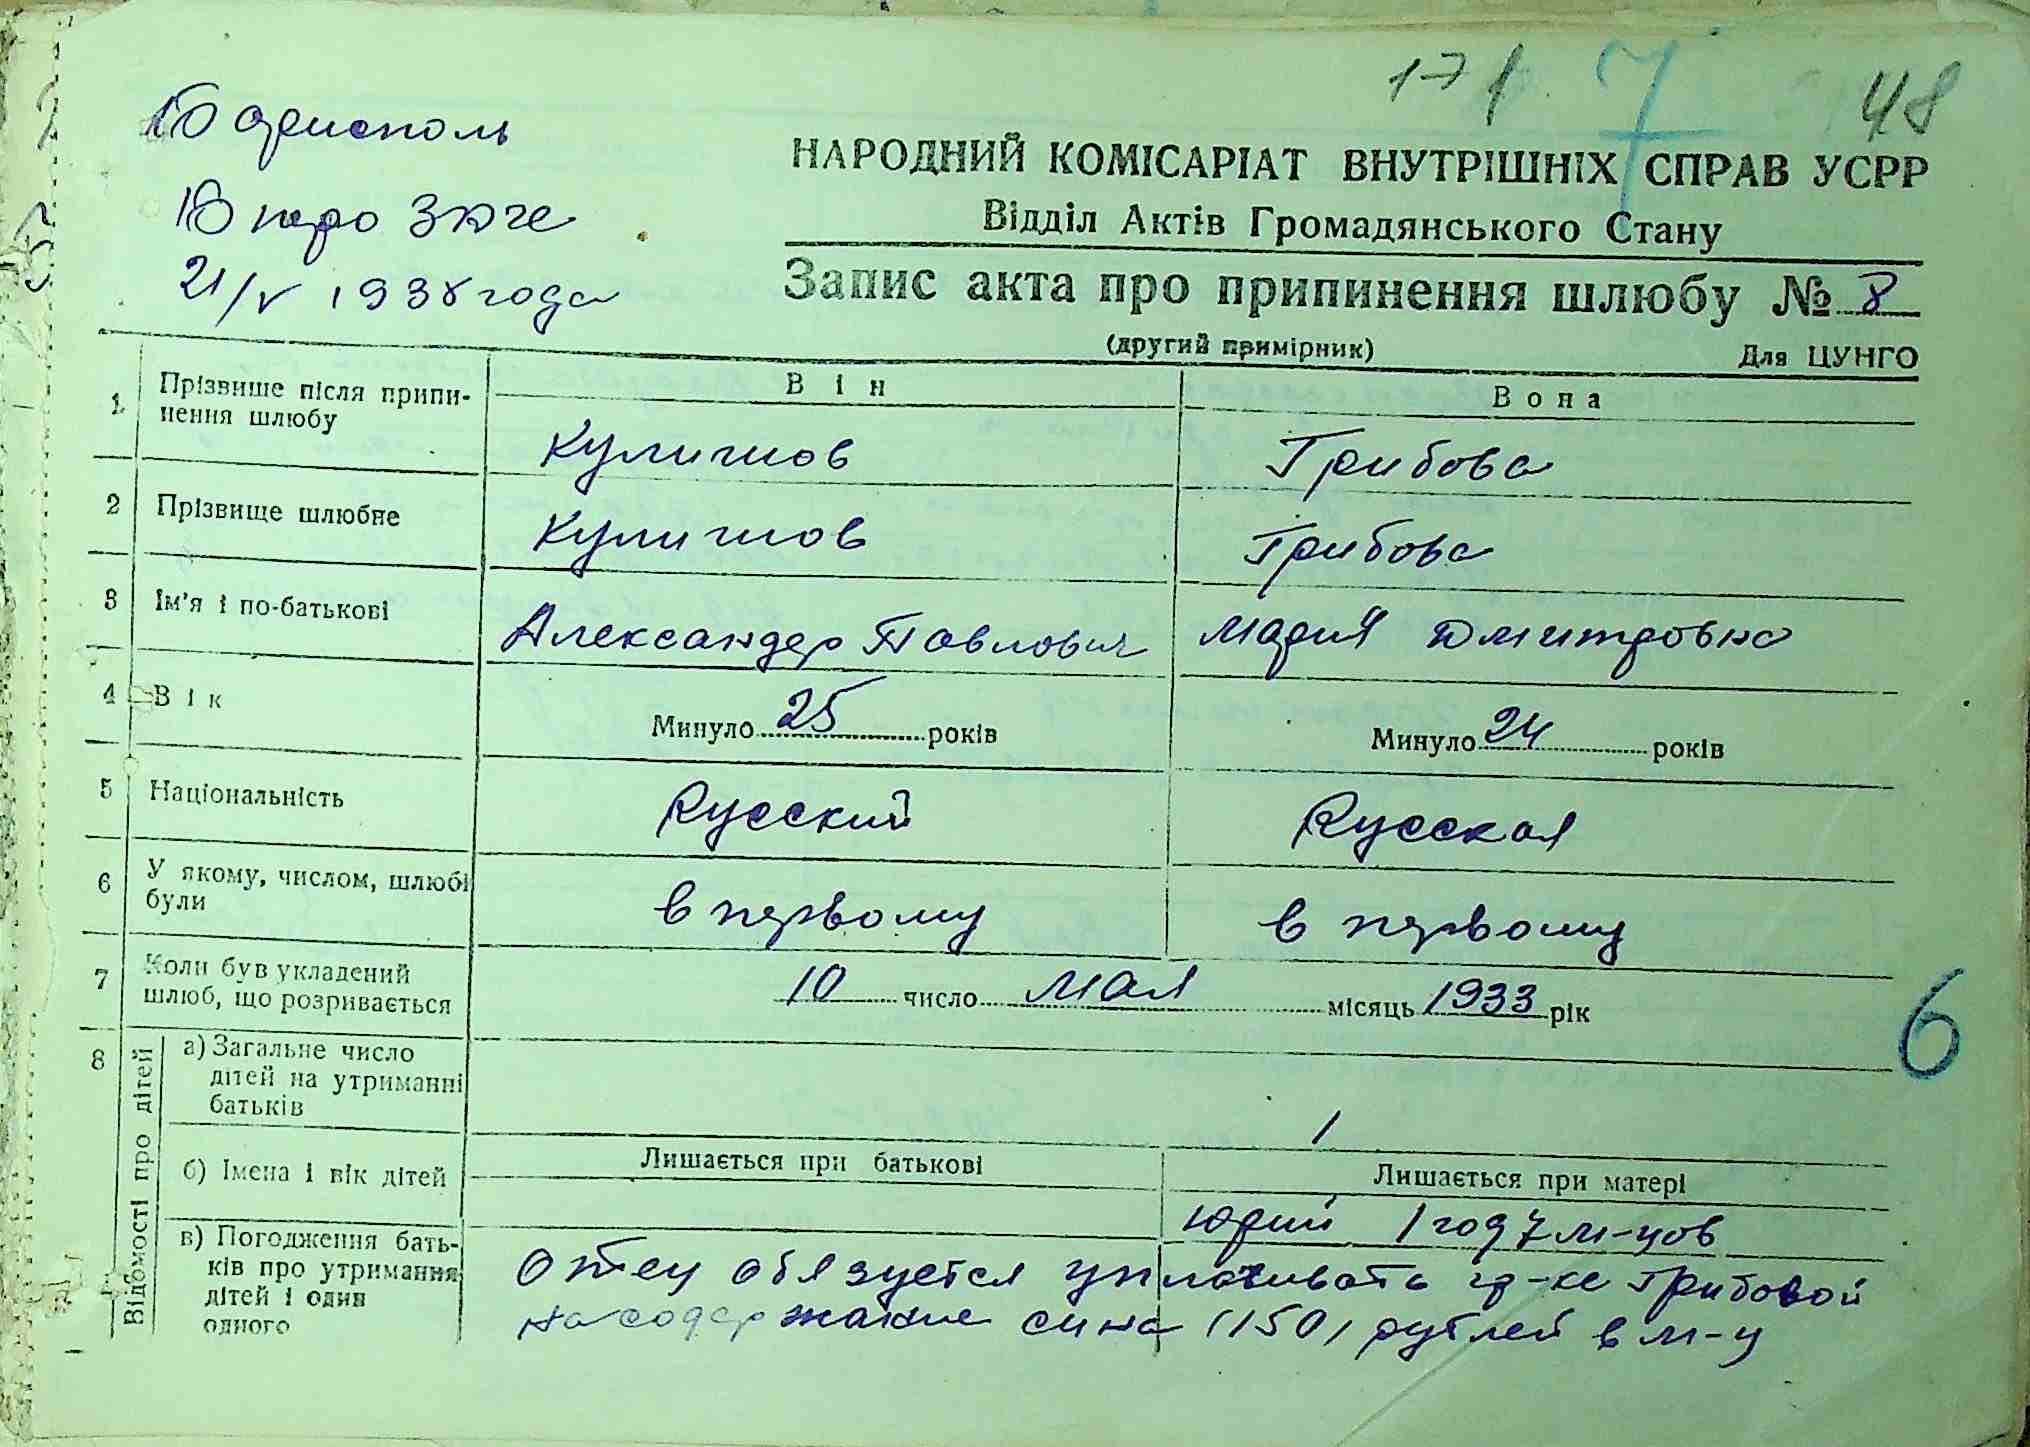 171 7 48
Борисполь
Бюро ЗАГС
21/V 1938 года
НАРОДНИЙ КОМІСАРІАТ ВНУТРІШНІХ СПРАВ УСРР
Відділ Актів Громадянського Стану
Запис акта про припинення шлюбу № 8
(другий примірник) Для ЦУНГО
Він Вона
1 Прізвище після припи-
нення шлюбу
Кулишов Грибова
2 Прізвище шлюбне Кулишов Грибова
3 Ім'я і по-батькові Александер Павлович Мария Дмитровна
4 Вік Минуло 25 років Минуло 24 років
5 Національність Русский Русская
6 У якому, числом, шлюбі
були
в первому в первому
7 Коли був укладений
шлюб, що розривається
10 число мая місяць 1933 рік
6
8 Відомості про дітей
а) Загальне число
дітей на утриманні
батьків
1
б) Імена і вік дітей Лишається при батькові Лишається при матері
Юрий 1 год 7 м-цов
в) Погодження бать-
ків про утримання
дітей і один
одного
Отец обязуется уплачивать гр-ке Грибовой
на содержание сина (150) рублей в м-ц